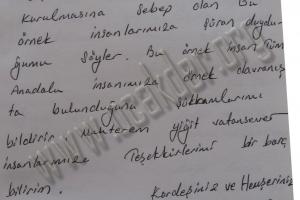 kurulmasına sebep olan Bu
örnek insanlarımıza şüran duydu-
ğumu söyler. Bu örnek insan tüm
Anadolu insanımıza örnek davranış
ta bulunduğunu şükranlarımı
bildirir muhterem yiğit vatansever
insanlarımıza Teşekkürlerimi bir borç
bilirim.
Kardeşiniz ve Hemşeriniz